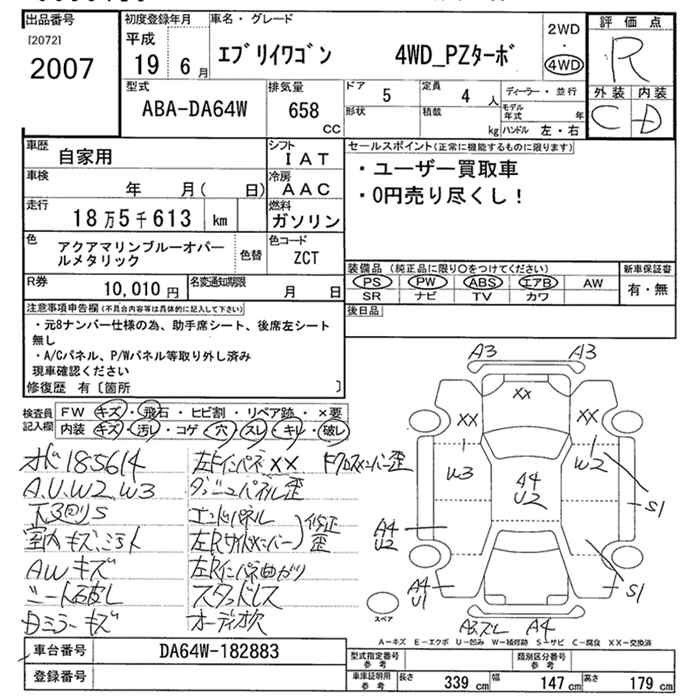 出品番号
[2072]
2007
初度登録年月
平成
19 6月
車名・グレード
ｴﾌﾞﾘｲﾜｺﾞﾝ 4WD_PZﾀｰﾎﾞ
2WD
・
4WD
評価点
R
外装 内装
C D
型式
ABA-DA64W
排気量
658
CC
ドア
5
定員
4 人
形状
積載
kg
ディーラー・並行
モデル年式 年
ハンドル 左・右
車歴
自家用
シフト
IAT
車検
年 月( 日)
冷房
AAC
走行
18万5千613 km
燃料
ガソリン
色
アクアマリンブルーオパー
ルメタリック
色替
色コード
ZCT
R券
10,010円
名変通知期限
月 日
セールスポイント(正常に機能するものに限ります)
・ユーザー買取車
・0円売り尽くし！
装備品(純正品に限り○をつけてください)
PS PW ABS エアB AW
SR ナビ TV カワ
新車保証書
有・無
後日品
注意事項申告欄(不具合内容等は具体的に記入して下さい)
・元8ナンバー仕様の為、助手席シート、後席左シート
無し
・A/Cパネル、P/Wパネル等取り外し済み
現車確認ください
修復歴 有〔箇所 〕
検査員
記入欄
FW キズ・飛石・ヒビ割・リペア跡・×要
内装 キズ・汚レ・コゲ・穴・スレ・キレ・破レ
オドー185614
A,U,W2,W3
下3回りS
室内キズ、汚れ
AWキズ
シート破レ
Dミラーキズ
左Fインパネ××
ダッシュパネル歪
エンドパネル
左Rサイドメンバー
修正
歪
左Rインパネ曲がり
スタッドレス
オーディオ欠
Fクロスメンバー歪
A3 A3
××
×× ××
W3 A4
U2 W2
S1
A4
U2
A4
U1
S1
A3スレ A4
スペア
A-キズ E-エクボ U-凹み W-補修跡 S-サビ C-腐食 XX-交換済
車台番号
DA64W-182883
登録番号
型式指定番号
参考
類別区分番号
参考
車庫証明用
参考
長さ 339 cm 幅 147 cm 高さ 179 cm